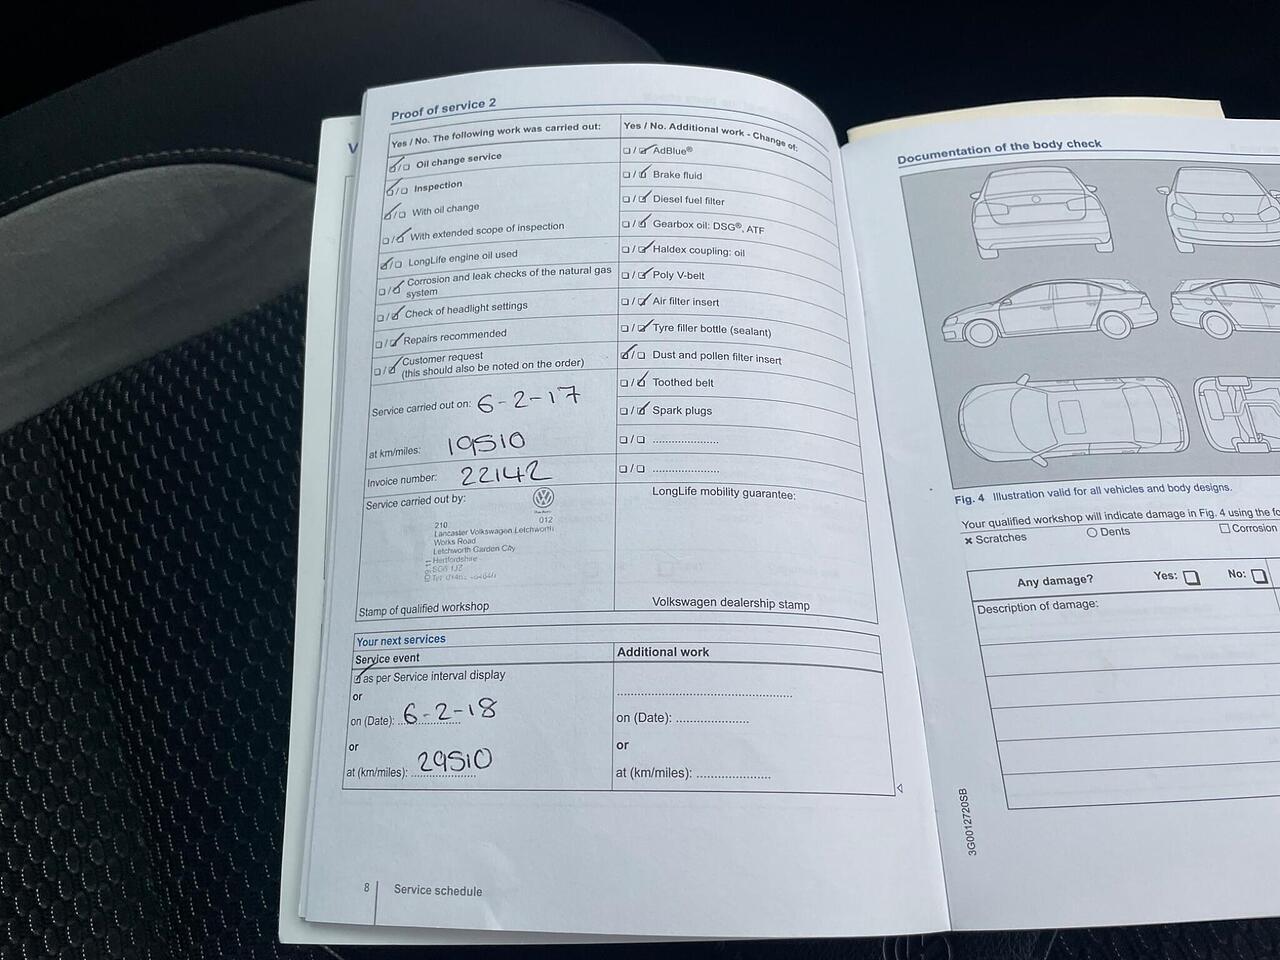 Proof of service 2
Yes / No. The following work was carried out:
Oil change service
Inspection
With oil change
With extended scope of inspection
LongLife engine oil used
Corrosion and leak checks of the natural gas
system
Check of headlight settings
Repairs recommended
Customer request
(this should also be noted on the order)
Service carried out on: 6-2-17
at km/miles: 19510
Invoice number: 22142
Service carried out by:
210 012
Lancaster Volkswagen Letchworth
Works Road
Letchworth Garden City
Hertfordshire
SG6 1JZ
Stamp of qualified workshop
Yes / No. Additional work - Change of:
AdBlue®
Brake fluid
Diesel fuel filter
Gearbox oil: DSG®, ATF
Haldex coupling: oil
Poly V-belt
Air filter insert
Tyre filler bottle (sealant)
Dust and pollen filter insert
Toothed belt
Spark plugs
LongLife mobility guarantee:
Volkswagen dealership stamp
Your next services
Service event
as per Service interval display
or
on (Date): 6-2-18
or
at (km/miles): 29510
Additional work
on (Date):
or
at (km/miles):
8 Service schedule
Documentation of the body check
Fig. 4 Illustration valid for all vehicles and body designs.
Your qualified workshop will indicate damage in Fig. 4 using the fo
Scratches Dents Corrosion
Any damage? Yes: No:
Description of damage:
3G0012720SB